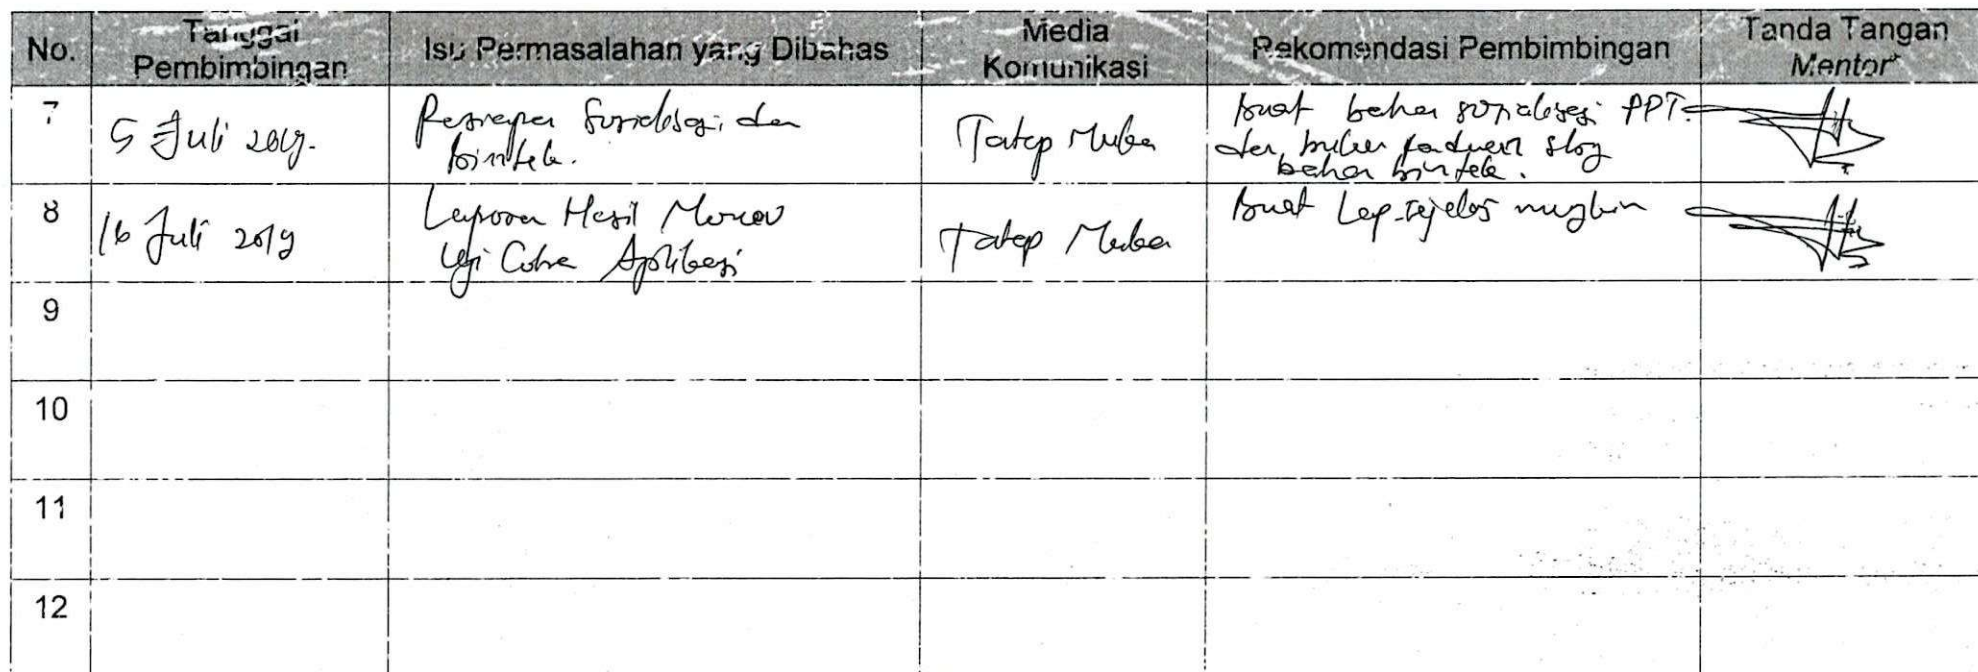 No.
Tanggal
Pembimbingan
Isu Permasalahan yang Dibahas
Media
Komunikasi
Rekomendasi Pembimbingan
Tanda Tangan
Mentor*
7
5 Juli 2019.
Persiapan Sosialisasi dan
bimtek.
Tatap Muka
Buat bahan sosialisasi PPT.
dan buku panduan sbg
bahan bimtek.
8
16 Juli 2019
Laporan Hasil Monev
Uji Coba Aplikasi
Tatap Muka
Buat Lap. sejelas mugkin
9
10
11
12